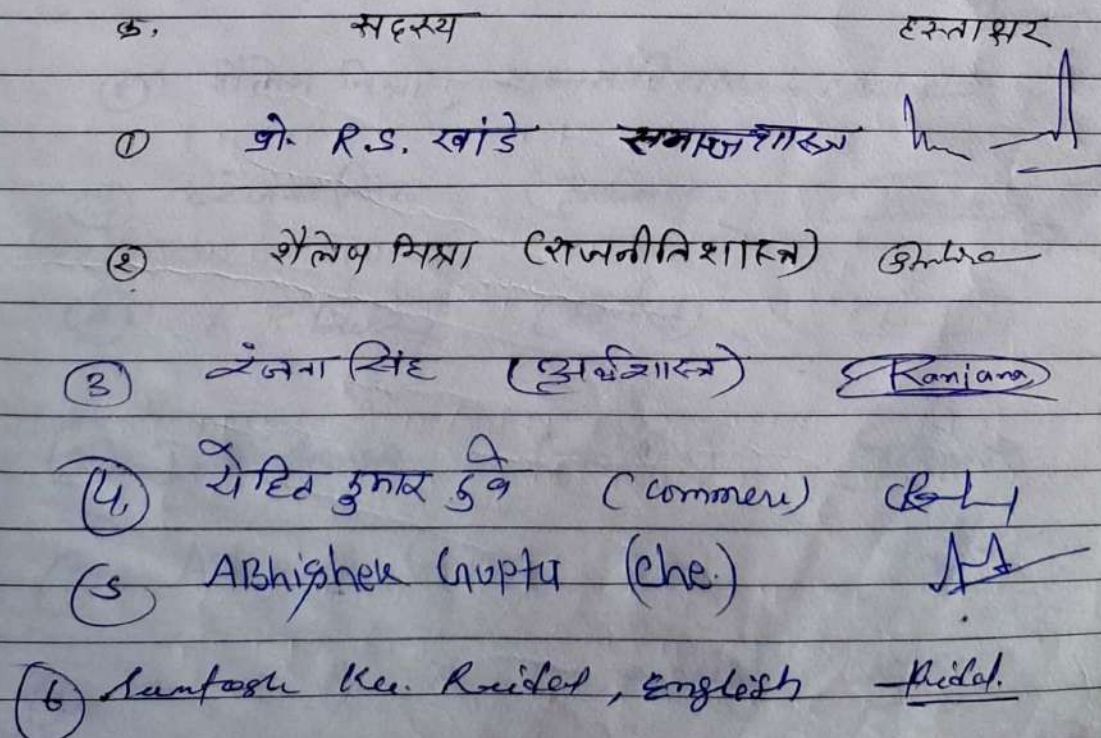 क्र. सदस्य हस्ताक्षर
① प्रो. R.S. खांडे समाजशास्त्र
② शैलेष मिश्रा (राजनीतिशास्त्र)
③ रंजना सिंह (अर्थशास्त्र) Ranjana
④ रोहित कुमार दुबे (commere)
⑤ ABhishek Gupta (Che.)
⑥ Santosh Ku. , English